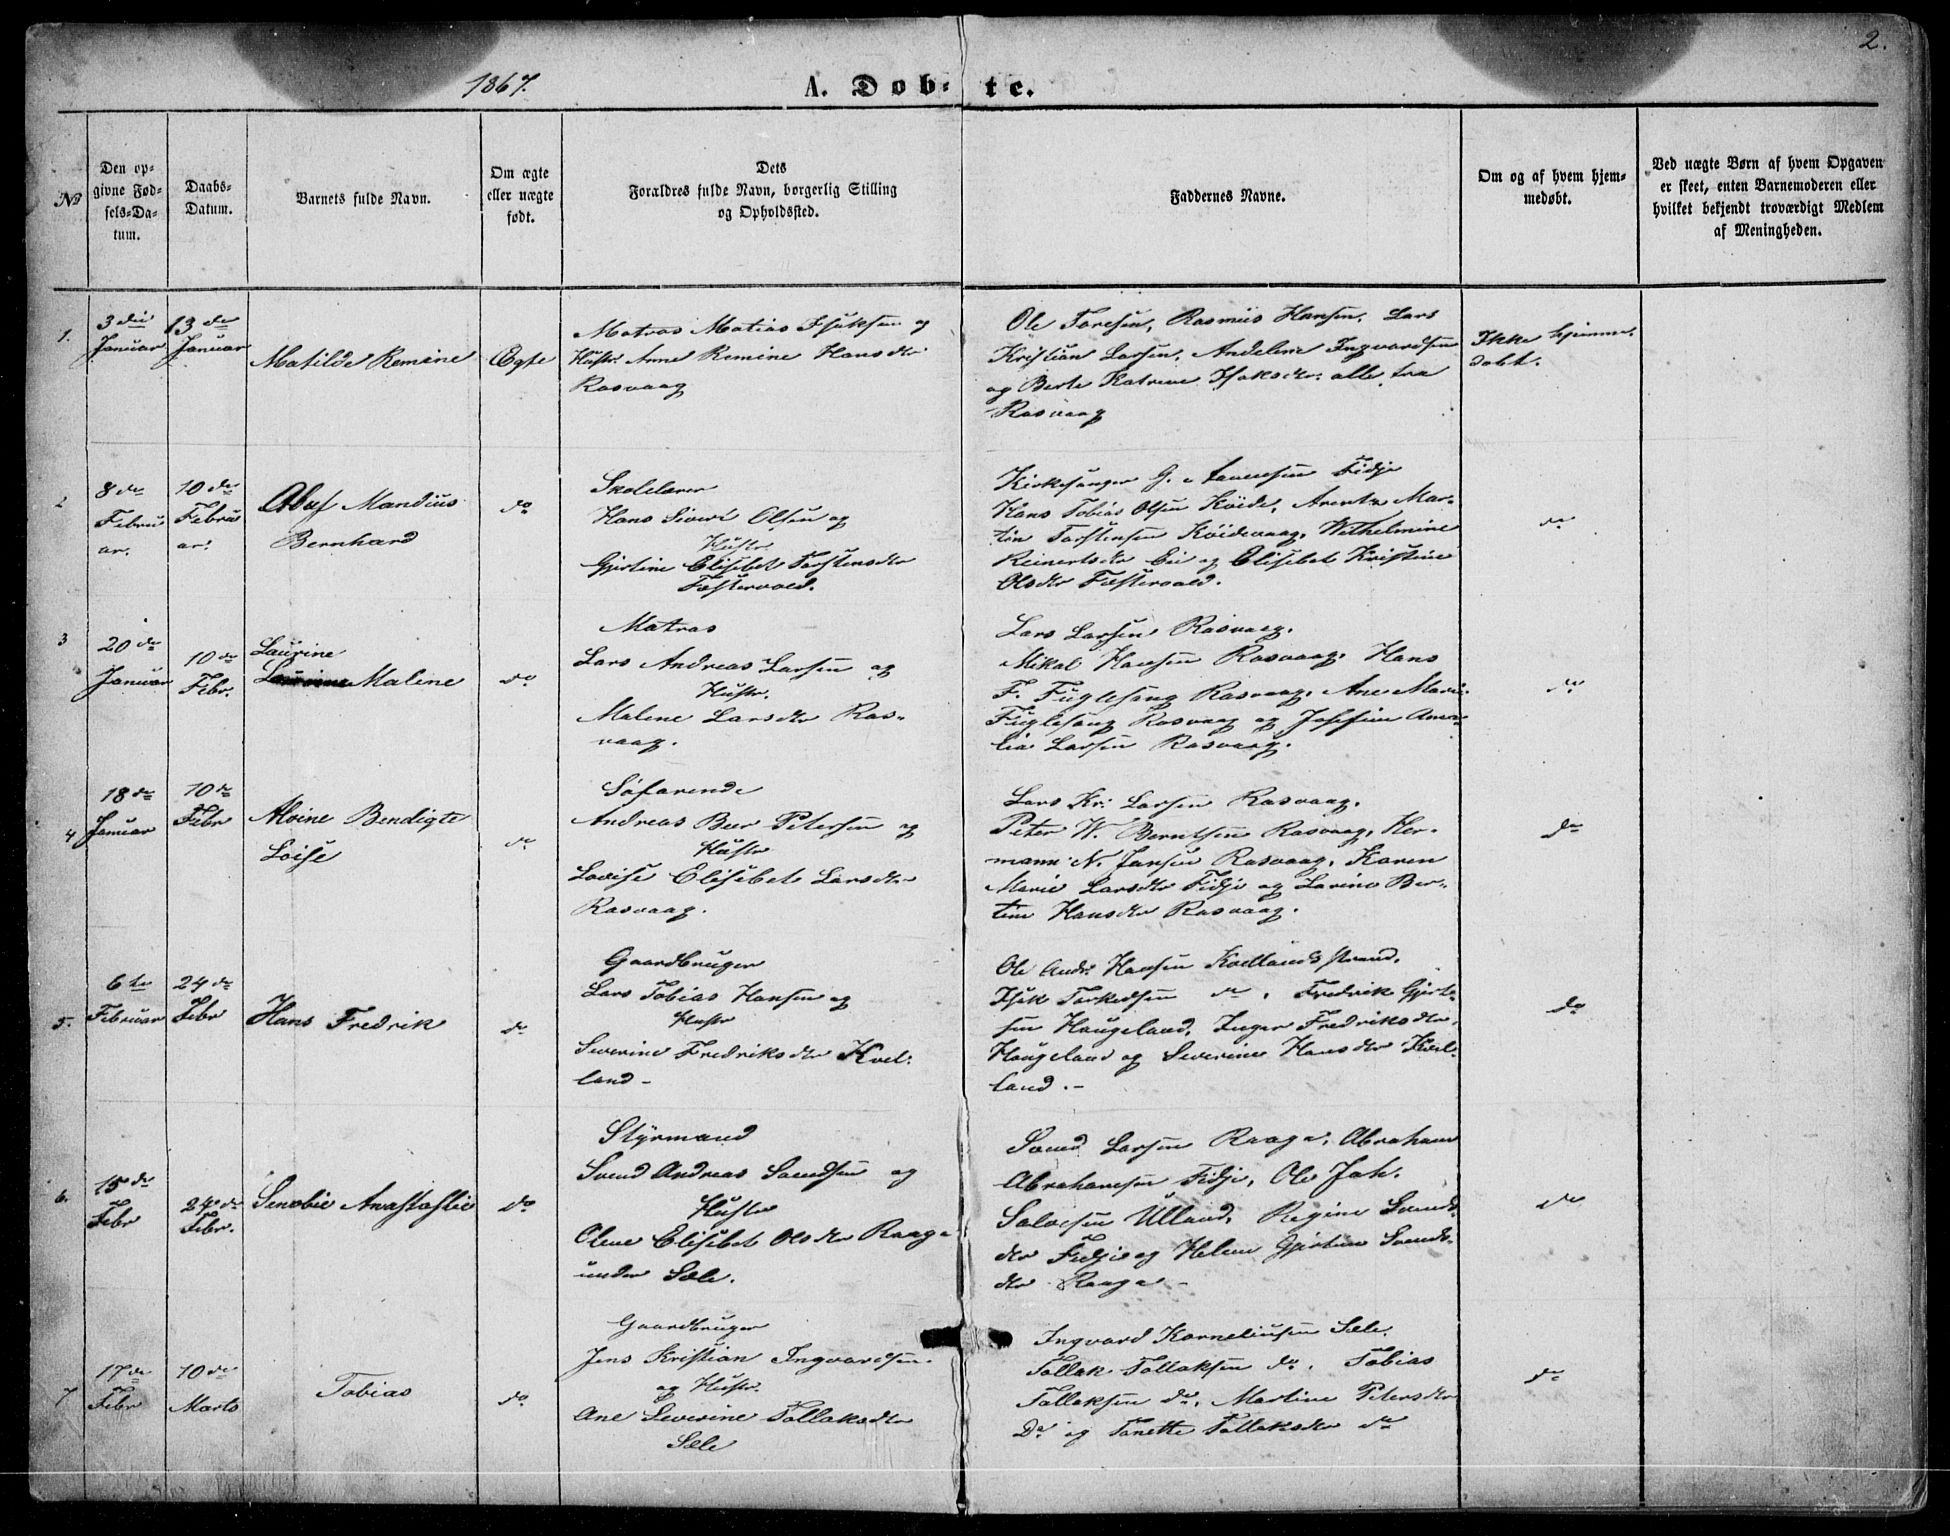 2.
1867.
A. Døbte.
No
Den opgivne Fødsels-Datum.
Daabs-Datum.
Barnets fulde Navn.
Om ægte eller uægte født.
Dets Forældres fulde Navn, borgerlig Stilling og Opholdssted.
Faddernes Navne.
Om og af hvem hjemmedøbt.
Ved uægte Børn af hvem Opgaven er skeet, enten Barnemoderen eller hvilket bekjendt troværdigt Medlem af Meningheden.
1.
3die
Januar
13de
Januar
Matilde Remine
Ægte
Matros Matias Isaksen og
Hustr. Anne Remine Hansdtr
Rasvaag
Ole Toresen, Rasmus Hansen, Lars
Kristian Larsen, Andeline Ingvardsen
og Berte Katrine Isaksdtr. alle fra
Rasvaag
Ikke hjemme-
døbt.
2
8de
Febru
ar.
10de
Febru
ar.
Olaf Mandius
Bernhard
do
Skolelærer
Hans Sivert Olsen og
Hustr.
Gjertine Elisebet Torstensdtr
Fæstervold.
Kirkesanger G. Fidje
Hans Tobias Olsen Køide, Arent Mar-
tin Torstensen Køidevaag, Wilhelmine
Reinertsdtr Eie og Elisebet Kristine
Olsdtr Fæstervold.
do
3
20de
Januar
10de
Febr.
Laurine
Malene
do
Matros
Lars Andreas Larsen og
Hustr.
Malene Larsdtr Ras-
vaag.
Lars Larsen Rasvaag,
Mikal Hansen Rasvaag, Hans
F. Fuglesang Rasvaag, Ane Marie
Fuglesang Rasvaag og Josefine Ama-
lia Larsen Rasvaag.
do
4
18de
Januar
10de
Febr
Alvine Bendigte
Loise
do
Søfarende
Andreas Beer Petersen og
Hustr
Lovise Elisebet Larsdtr
Rasvaag.
Lars Kr. Larsen Rasvaag,
Peter W. Berntsen Rasvaag, Her-
mann N. Jansen Rasvaag, Karen
Marie Larsdtr Fidje og Larine Ber-
tine Hansdtr Rasvaag.
do
5.
6te
Februar
24de
Febr
Hans Fredrik
do
Gaardbruger
Lars Tobias Hansen og
Hustr
Severine Fredriksdtr Kvel-
land-
Ole Andr. Hansen Kvellandsstrand,
Isak Torkedsen do, Fredrik Gjert-
sen Haugeland, Inger Fredriksdtr,
Haugeland og Severine Hansdtr Kvel-
land.-
do
6.
15de
Febr
24de
Febr.
Senobie Anastastie
do
Styrmand
Svend Andreas Svendsen og
Hustr
Olene Elisebet Olsdtr Raage
under Sæle.
Svend Larsen Raage, Abraham
Abrahamsen Fidje, Ole Joh.
Salvesen Ulland, Regine Svends-
dtr Fidje og Helene Gjertine Svends-
dtr Raage-
do
7
17de
Febr
10de
Marts
Tobias
do
Gaardbruger
Jens Kristian Ingvardsen
og Hustr.
Ane Severine Tollaksdtr
Sæle
Ingvard Korneliusen Sæle,
Tollak Tollaksen do, Tobias
Tollaksen do, Martine Petersdtr
Do og Tonette Tollaksdtr do
do